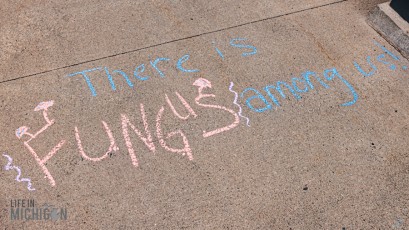 There is
FUNGUS among us!
LIFE IN
MICHIGAN